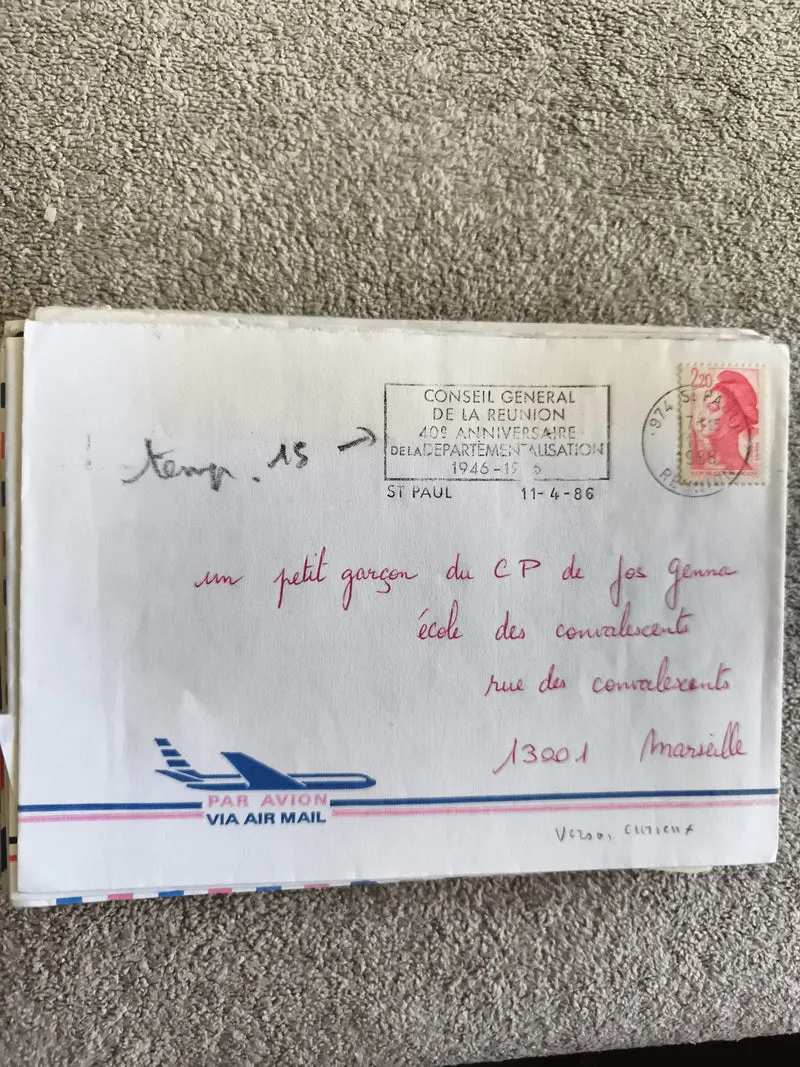 CONSEIL GENERAL
DE LA REUNION
40e ANNIVERSAIRE
DE LA DEPARTEMENTALISATION
1946-19 6
ST PAUL 11-4-86
2,20
974 ST PAUL
REUNION
temp. 15 →
un petit garçon du CP de Jos Genna
école des convalescents
rue des convalescents
13001 Marseille
PAR AVION
VIA AIR MAIL
Verso, curieux